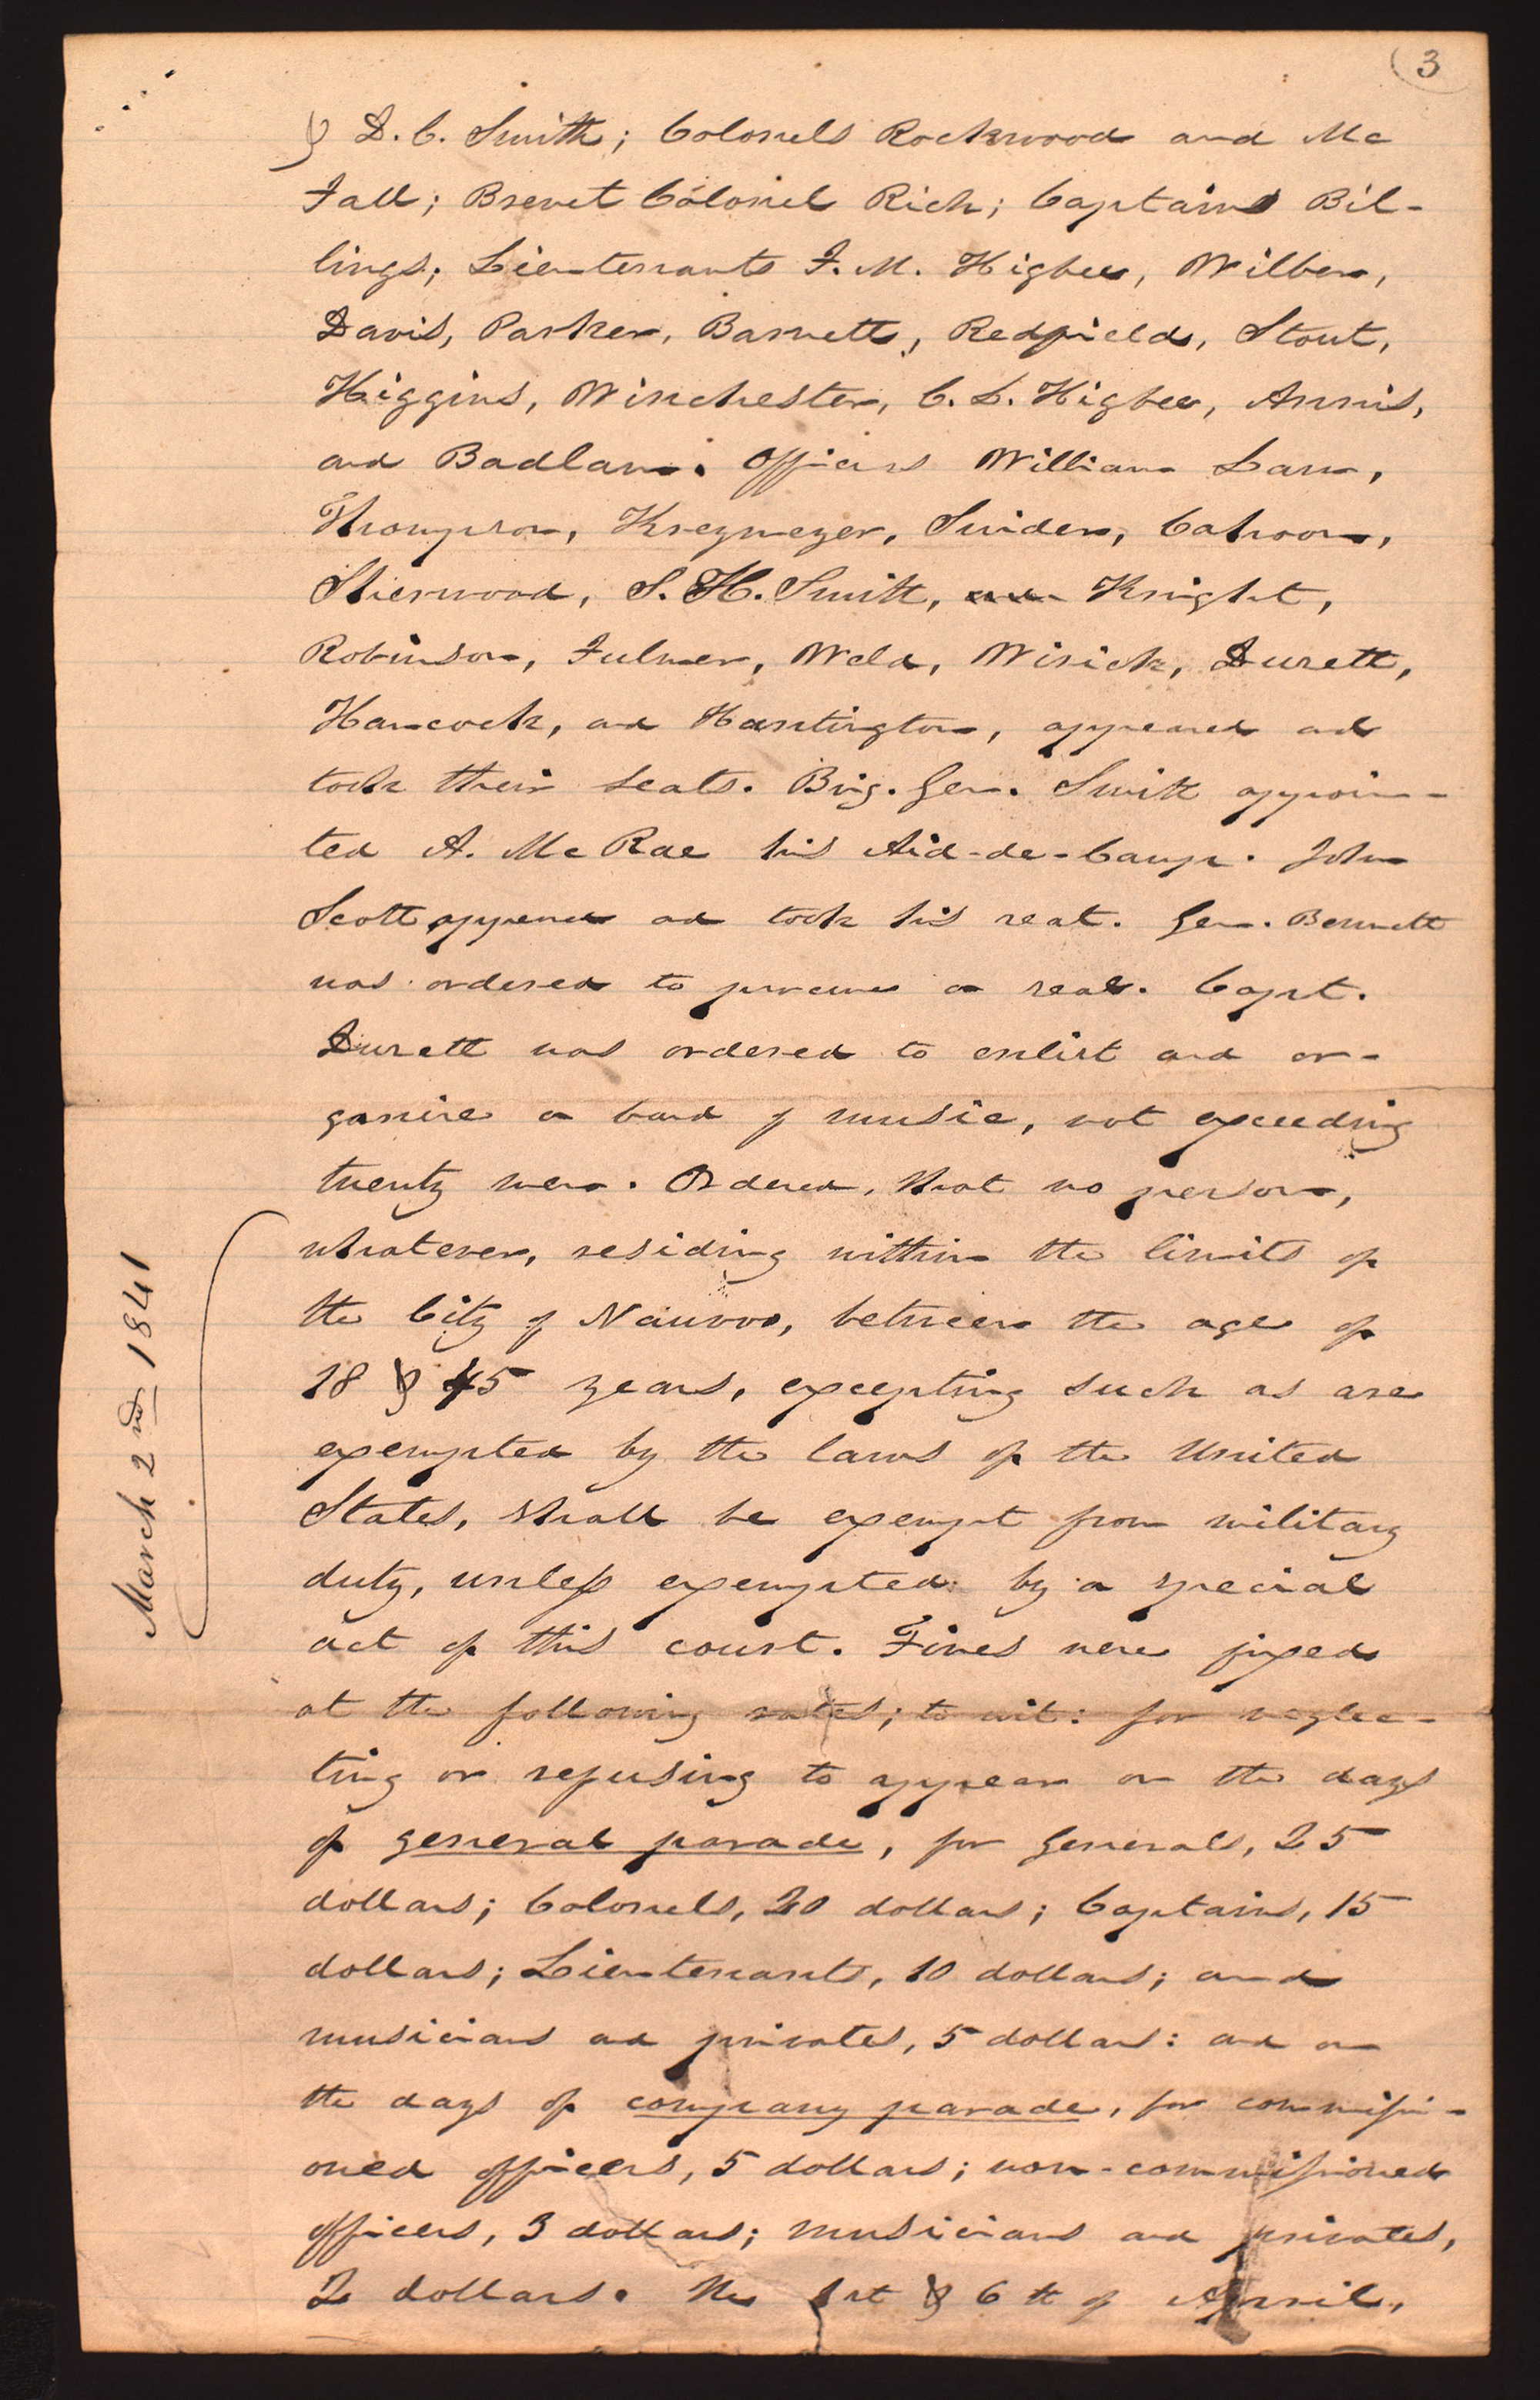 3
& D. C. Smith; Colonels Rockwood and Mc
Fall; Brevet Colonel Rich; Captains Bil-
lings; Lieutenants F. M. Higbee, Wilber,
Davis, Parker, Barnett, Redfield, Stout,
Higgins, Winchester, C. L. Higbee, Annis,
and Badlam; Officers William Law,
Thompson, Kreymeyer, Snider, Cahoon,
Sherwood, S. H. Smith, and Knight,
Robinson, Fulmer, Weld, Wisick, Durett,
Hancock, and Huntington, appeared and
took their seats. Brig. Gen. Smith appoin-
ted A. McRae his Aid-de-Camp. John
Scott appeared and took his seat. Gen. Bennett
was ordered to procure a seal. Capt.
Durett was ordered to enlist and or-
ganize a band of music, not exceeding
twenty men. Ordered, that no person,
whatever, residing within the limits of
the City of Nauvoo, between the age of
18 & 45 years, excepting such as are
exempted by the laws of the United
States, shall be exempt from military
duty, unless exempted by a special
act of this court. Fines were fixed
at the following rates; to wit: for neglec-
ting or refusing to appear on the days
of general parade, for Generals, 25
dollars; Colonels, 20 dollars; Captains, 15
dollars; Lieutenants, 10 dollars; and
musicians and privates, 5 dollars: and on
the days of company parade, for commissi-
oned officers, 5 dollars; non-commissioned
officers, 3 dollars; musicians and privates,
2 dollars. The 1st & 6th of April,
March 2nd 1841